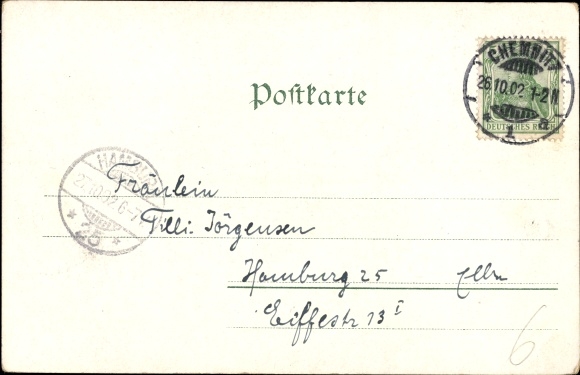 CHEMNITZ
26.10.02. 1-2 N
* 1 a
DEUTSCHES REICH
Postkarte
HAMBURG
27.10.02. 6-7
* 25 *
Fräulein
Tilli Jörgensen
Hamburg 25
Eiffestr 13 I
6